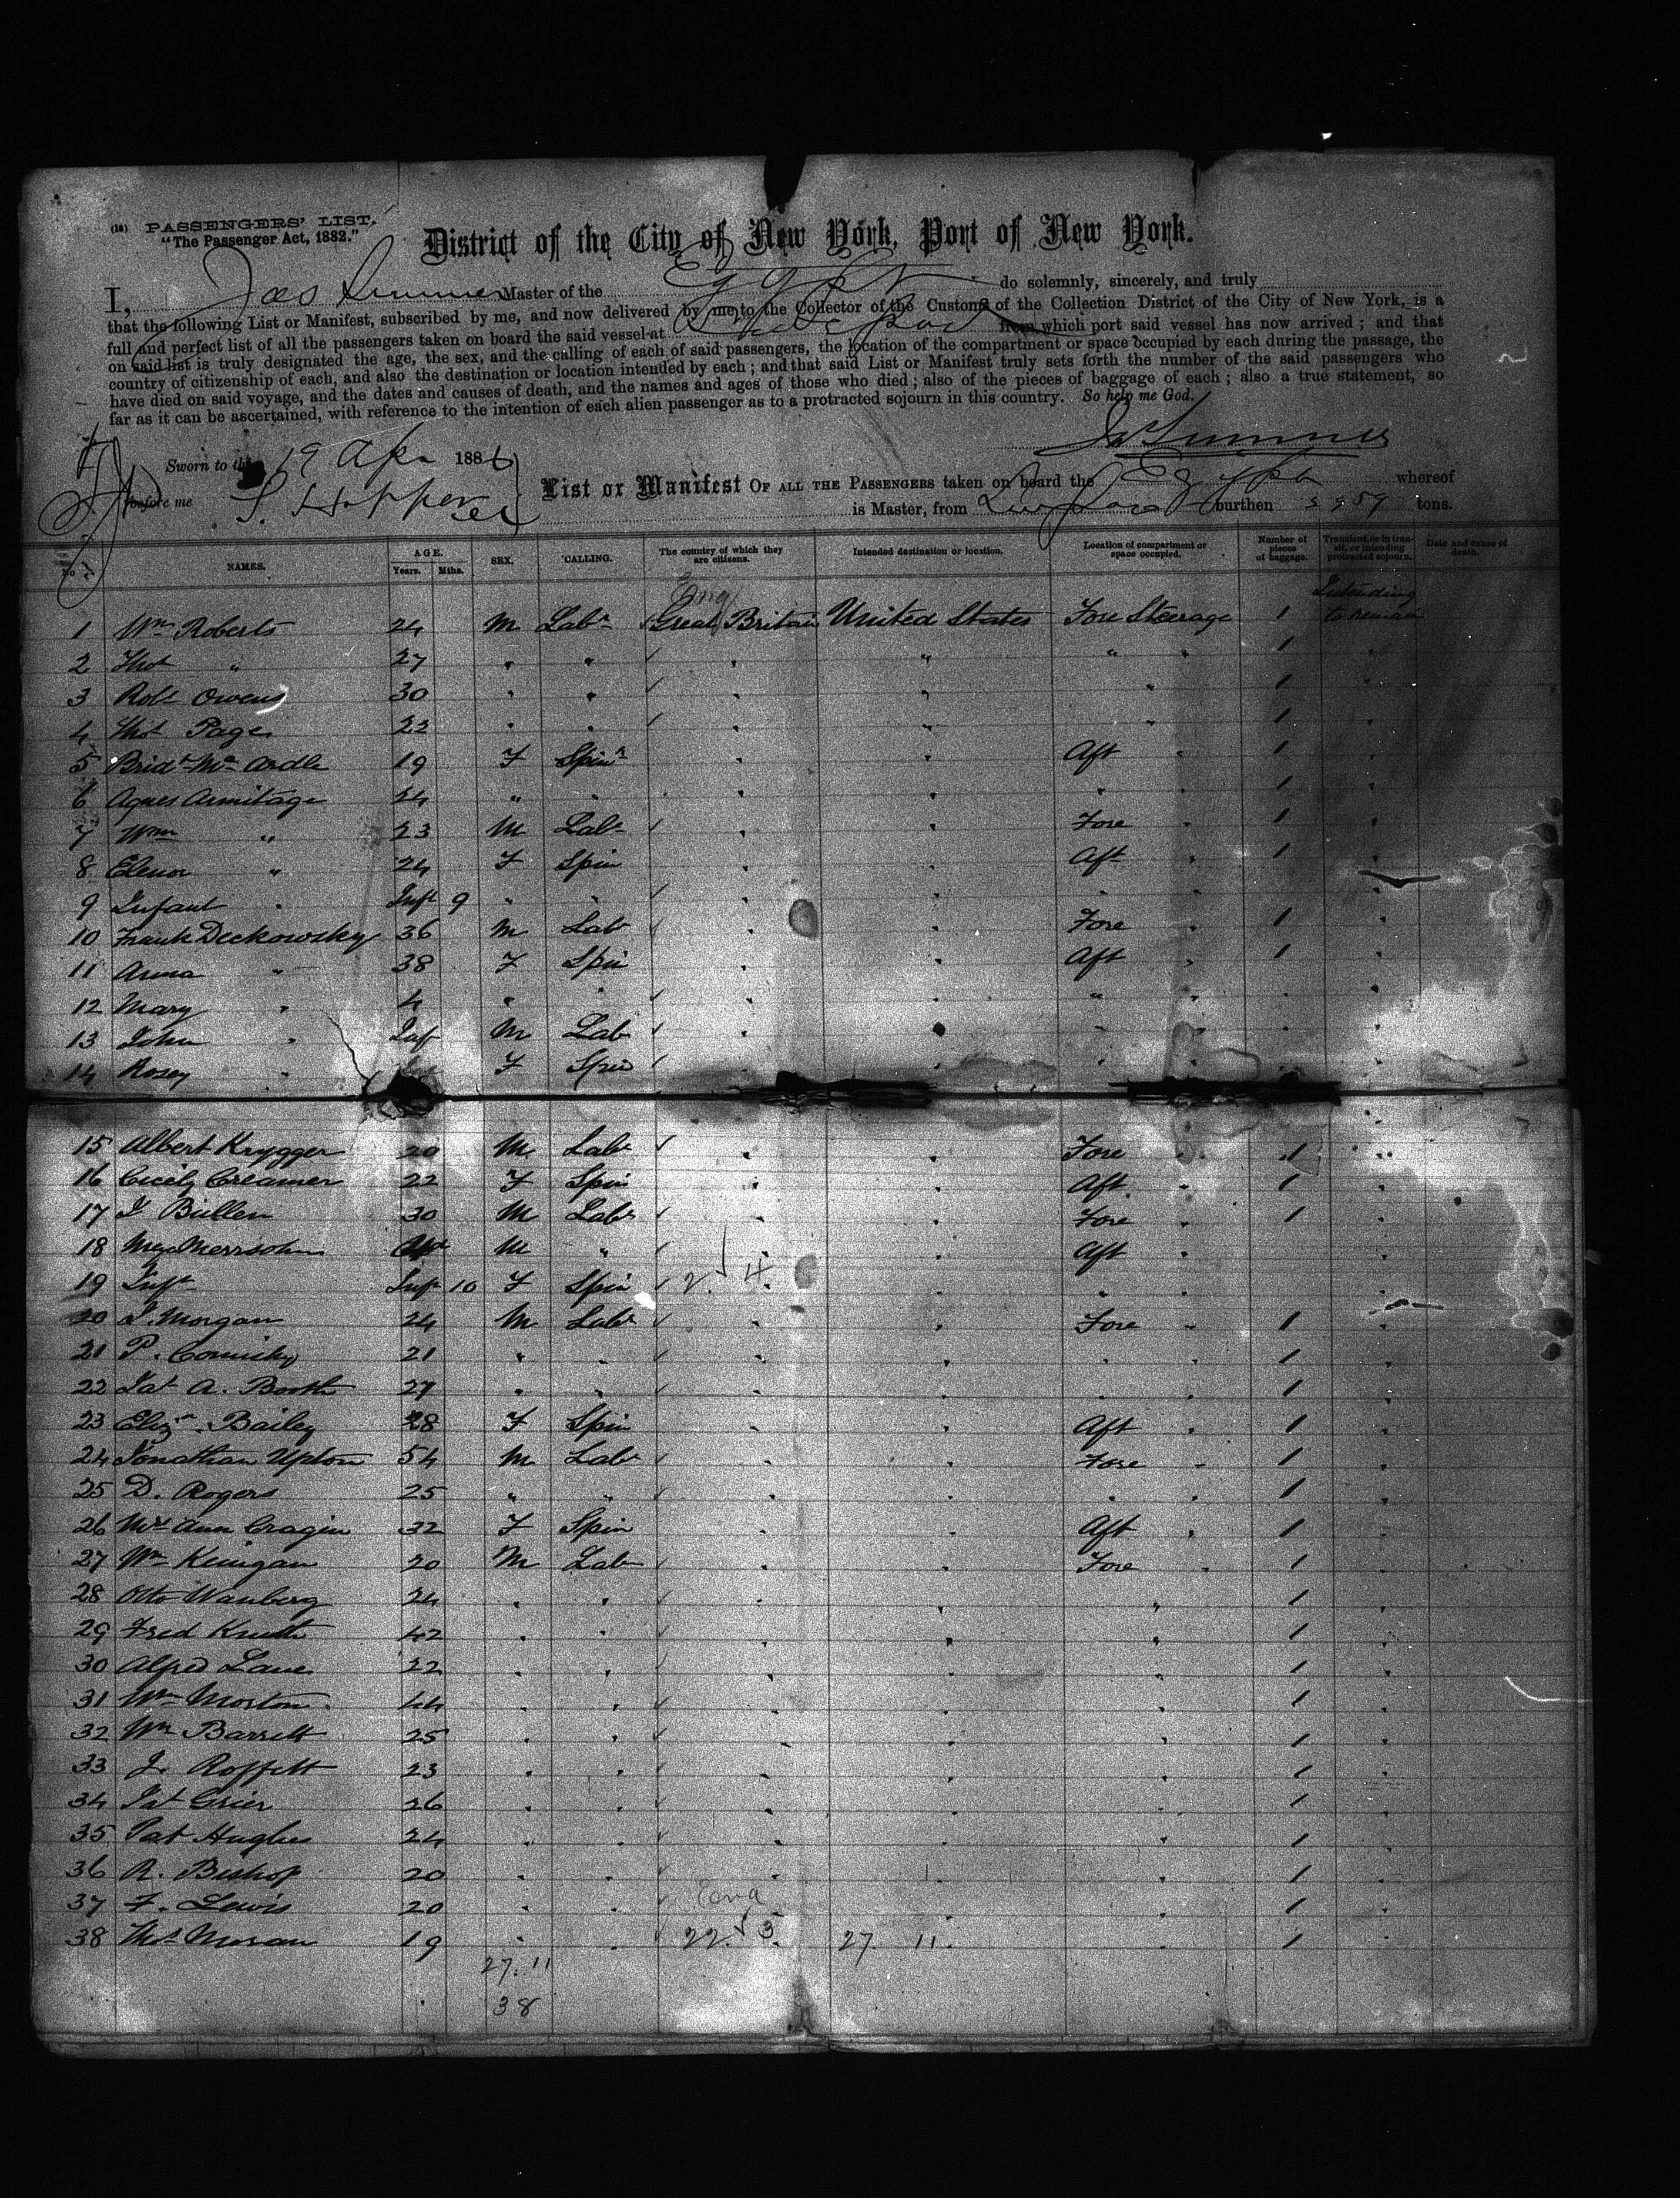 (18) PASSENGERS' LIST.
"The Passenger Act, 1882."
District of the City of New York, Port of New York.
I, Jas Sumner Master of the Egypt do solemnly, sincerely, and truly
that the following List or Manifest, subscribed by me, and now delivered by me to the Collector of the Customs of the Collection District of the City of New York, is a
full and perfect list of all the passengers taken on board the said vessel at Liverpool from which port said vessel has now arrived; and that
on said list is truly designated the age, the sex, and the calling of each of said passengers, the location of the compartment or space occupied by each during the passage, the
country of citizenship of each, and also the destination or location intended by each; and that said List or Manifest truly sets forth the number of the said passengers who
have died on said voyage, and the dates and causes of death, and the names and ages of those who died; also of the pieces of baggage of each; also a true statement, so
far as it can be ascertained, with reference to the intention of each alien passenger as to a protracted sojourn in this country. So help me God.
Jas Sumner
Sworn to this 19 Apr 1886
before me S. Hopper
List or Manifest OF ALL THE PASSENGERS taken on board the Egypt whereof
is Master, from Liverpool burthen tons.
No NAMES. AGE. Years. Mths. SEX. CALLING. The country of which they are citizens. Intended destination or location. Location of compartment or space occupied. Number of pieces of baggage. Transient or in transit, or intending protracted sojourn. Date and cause of death.
Eng Intending
1 Wm Roberts 24 M Labr Great Britain United States Fore Steerage 1 to remain
2 Thos " 27 " " " " " " 1 "
3 Robt Owens 30 " " " " " 1 "
4 Thos Page 22 " " " " " 1 "
5 Bridt Mc Ardle 19 F Spinr " " Aft " 1 "
6 Agnes Armitage 24 " " " " " " 1 "
7 Wm " 23 M Labr " " Fore " 1 "
8 Elenor " 24 F Spin " " Aft " 1 "
9 Infant " Inft 9 " " " " " " "
10 Frank Deckowsky 36 M Labr " " Fore " 1 "
11 Anna " 38 F Spin " " Aft " 1 "
12 Mary " 4 " " " " " " "
13 John " Inf M Lab " " " " "
14 Rosey " F Spin " " "
15 Albert Krygger 20 M Labr " " Fore " 1 "
16 Cicely Creamer 22 F Spin " " Aft " 1 "
17 J Bullen 30 M Labr " " Fore " 1 "
18 M " " " Aft "
19 Inft Inft 10 F Spin 2 4 " " " "
20 J. Morgan 24 M Labr " " Fore " 1 "
21 P. 21 " " " " " " 1 "
22 Pat A. Booth 27 " " " " " " 1 "
23 Eliza Bailey 28 F Spin " " Aft " 1 "
24 Jonathan Upton 54 M Labr " " Fore " 1 "
25 D. Rogers 25 " " " " " " 1 "
26 Mrs Ann Cragin 32 F Spin " " Aft " 1 "
27 Wm Keingan 20 M Lab " " Fore " 1 "
28 Otto Wanberg 24 " " " " " 1 "
29 Fred 42 " " " " " 1 "
30 Alfred Lane 22 " " " " " 1 "
31 Wm Morton 44 " " " " " 1 "
32 Wm Barrett 25 " " " " " 1 "
33 J. Roffett 23 " " " " " 1 "
34 Pat Grier 26 " " " " " 1 "
35 Pat Hughes 24 " " " " " 1 "
36 R. Bishop 20 " " " " 1 "
37 F. Lewis 20 " " Eng " " 1 "
38 Thos Moran 19 " " 22. 5. 27. 11. " 1 "
27. 11
38